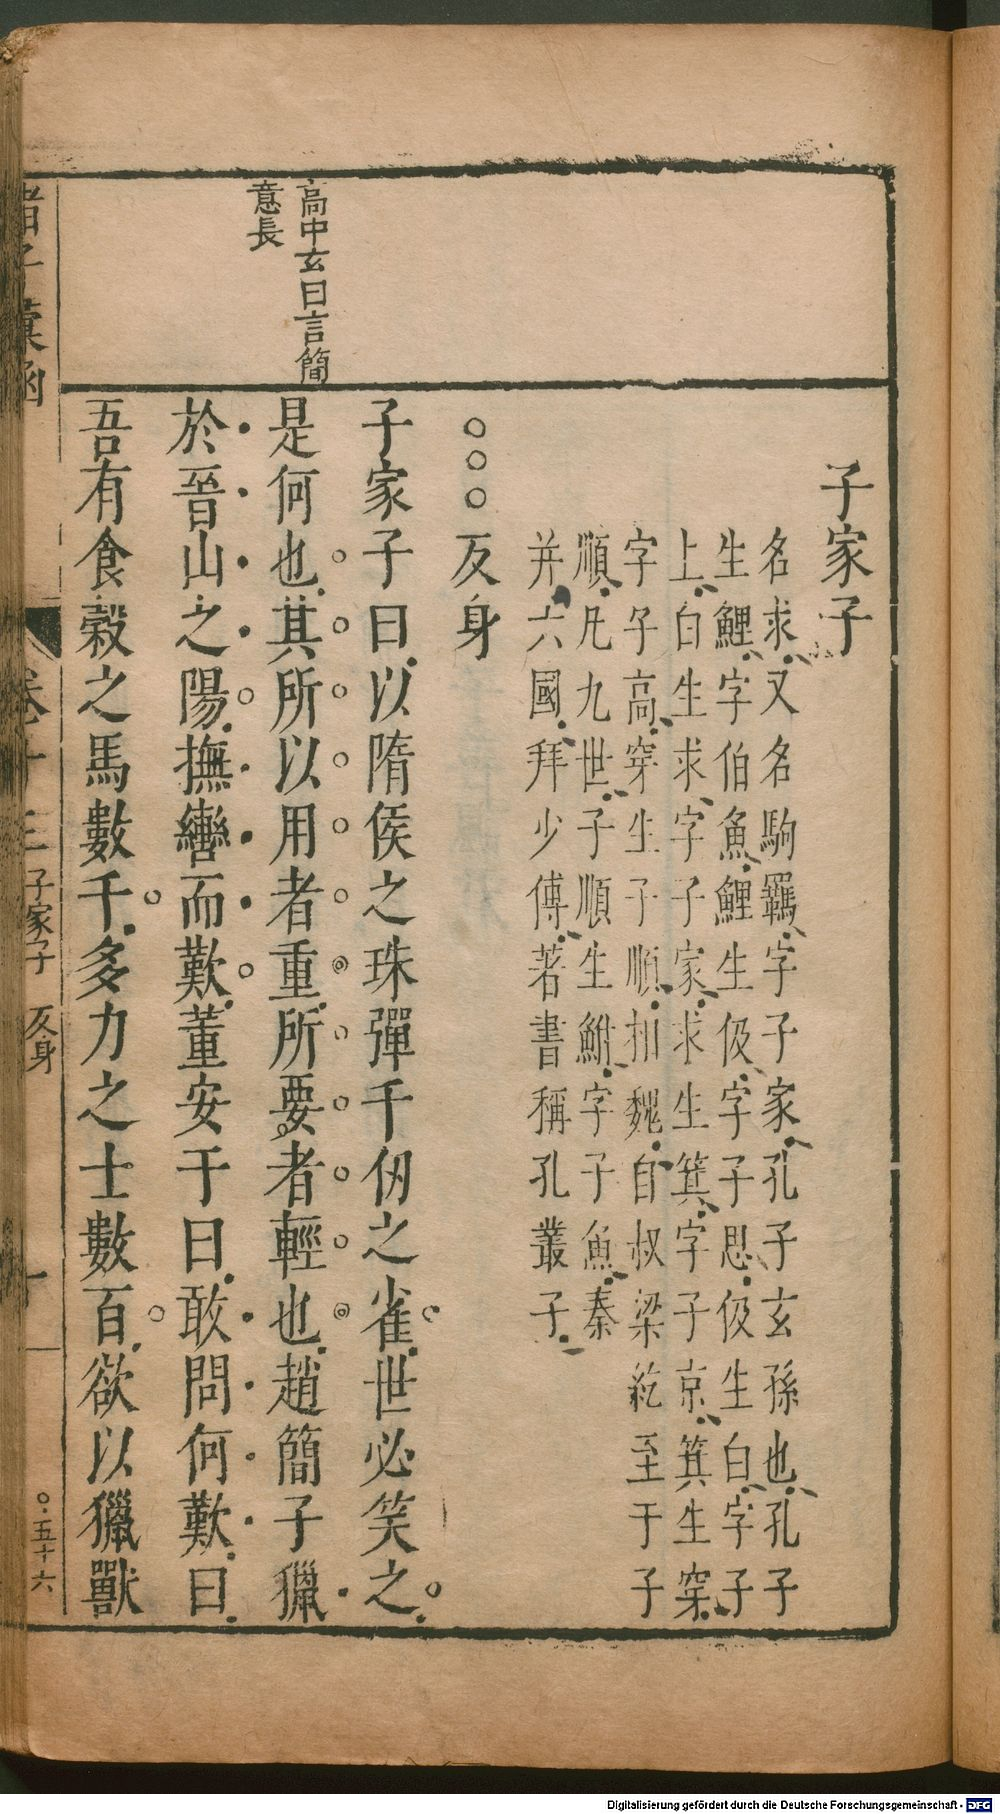 子家子
名求又名駒羈字子家孔子玄孫也孔子
生鯉字伯魚鯉生伋字子思伋生白字子
上白生求字子家求生箕字子京箕生穿
字子高穿生子順相魏自叔梁紇至于子
順凡九世子順生鮒字子魚秦
并六國拜少傅著書稱孔叢子
○○○反身
子家子曰以隋侯之珠彈千仞之雀世必笑之
高中玄曰言簡
意長
是何也其所以用者重所要者輕也趙簡子獵
於晉山之陽撫轡而歎董安于曰敢問何歎曰
吾有食穀之馬數千多力之士數百欲以獵獸
諸子彙函 卷十三 子家子 反身 一 ○五十六
Digitalisierung gefördert durch die Deutsche Forschungsgemeinschaft - DFG